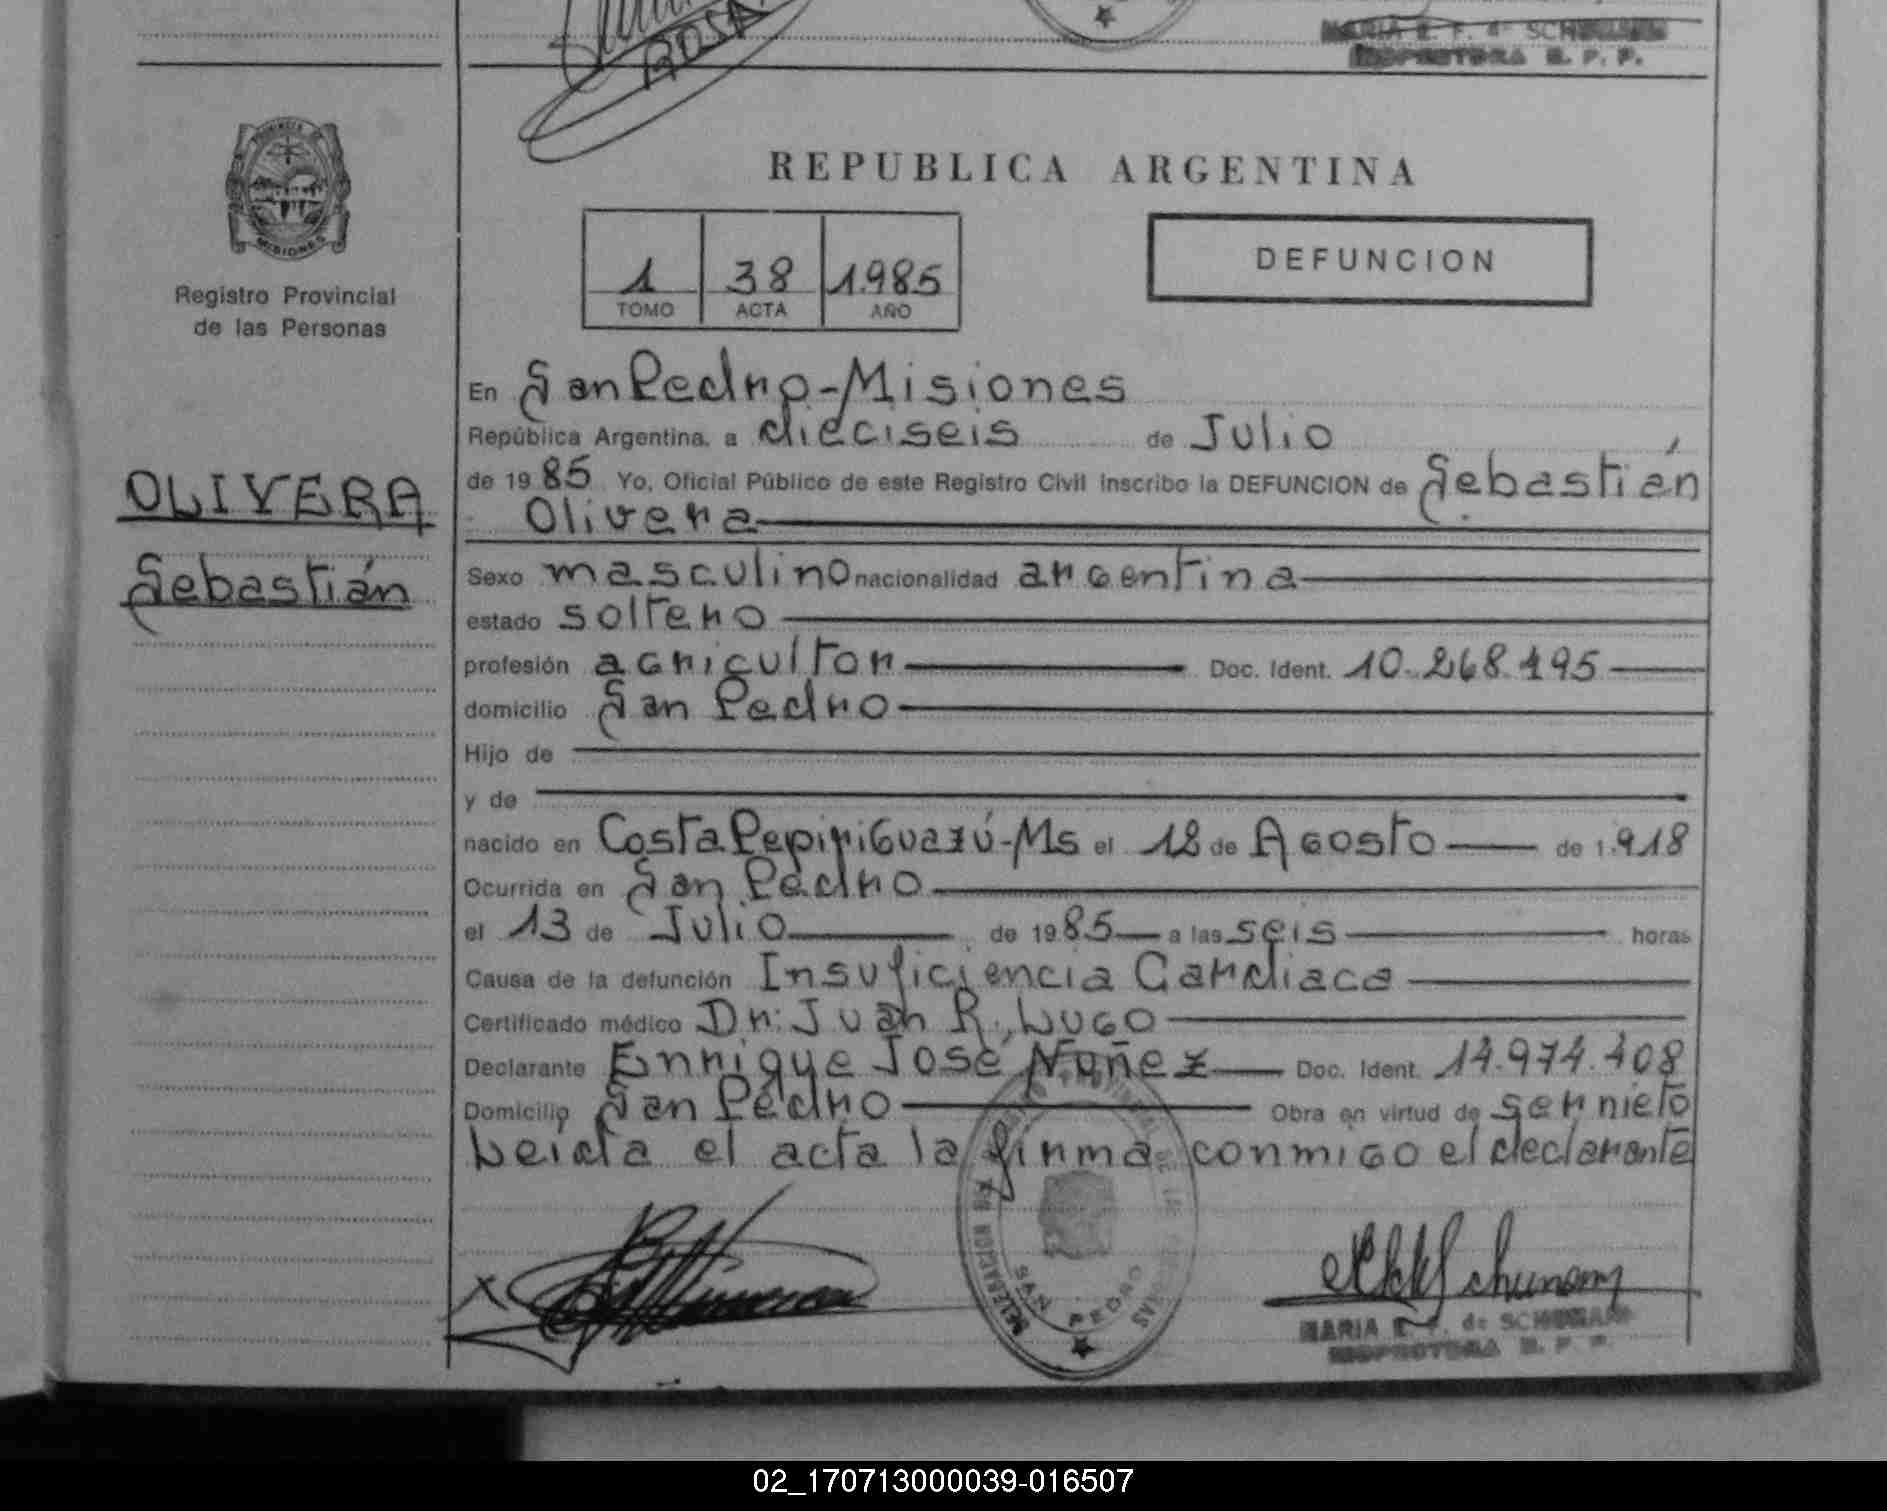 ROSA
MARIA E. F. de SCHUMANN
INSPECTORA R. P. P.
PROVINCIA DE
MISIONES
Registro Provincial
de las Personas
OLIVERA
Sebastián
REPUBLICA ARGENTINA
1 38 1.985
TOMO ACTA AÑO
DEFUNCION
En San Pedro-Misiones
República Argentina, a dieciseis de Julio
de 1985 Yo, Oficial Público de este Registro Civil inscribo la DEFUNCION de Sebastián
Olivera
Sexo masculino nacionalidad argentina
estado soltero
profesión agricultor Doc. Ident. 10.268.195
domicilio San Pedro
Hijo de
y de
nacido en Costa Pepiriguazú-Ms el 18 de Agosto de 1.918
Ocurrida en San Pedro
el 13 de Julio de 1985 a las seis horas
Causa de la defunción Insuficiencia Cardiaca
Certificado médico Dr: Juan R. Lugo
Declarante Enrrique José Nuñez Doc. Ident. 14.974.408
Domicilio San Pedro Obra en virtud de ser nieto
Leida el acta la firma conmigo el declarante
X
SAN PEDRO
MARIA E. F. de SCHUMANN
INSPECTORA R. P. P.
02_170713000039-016507